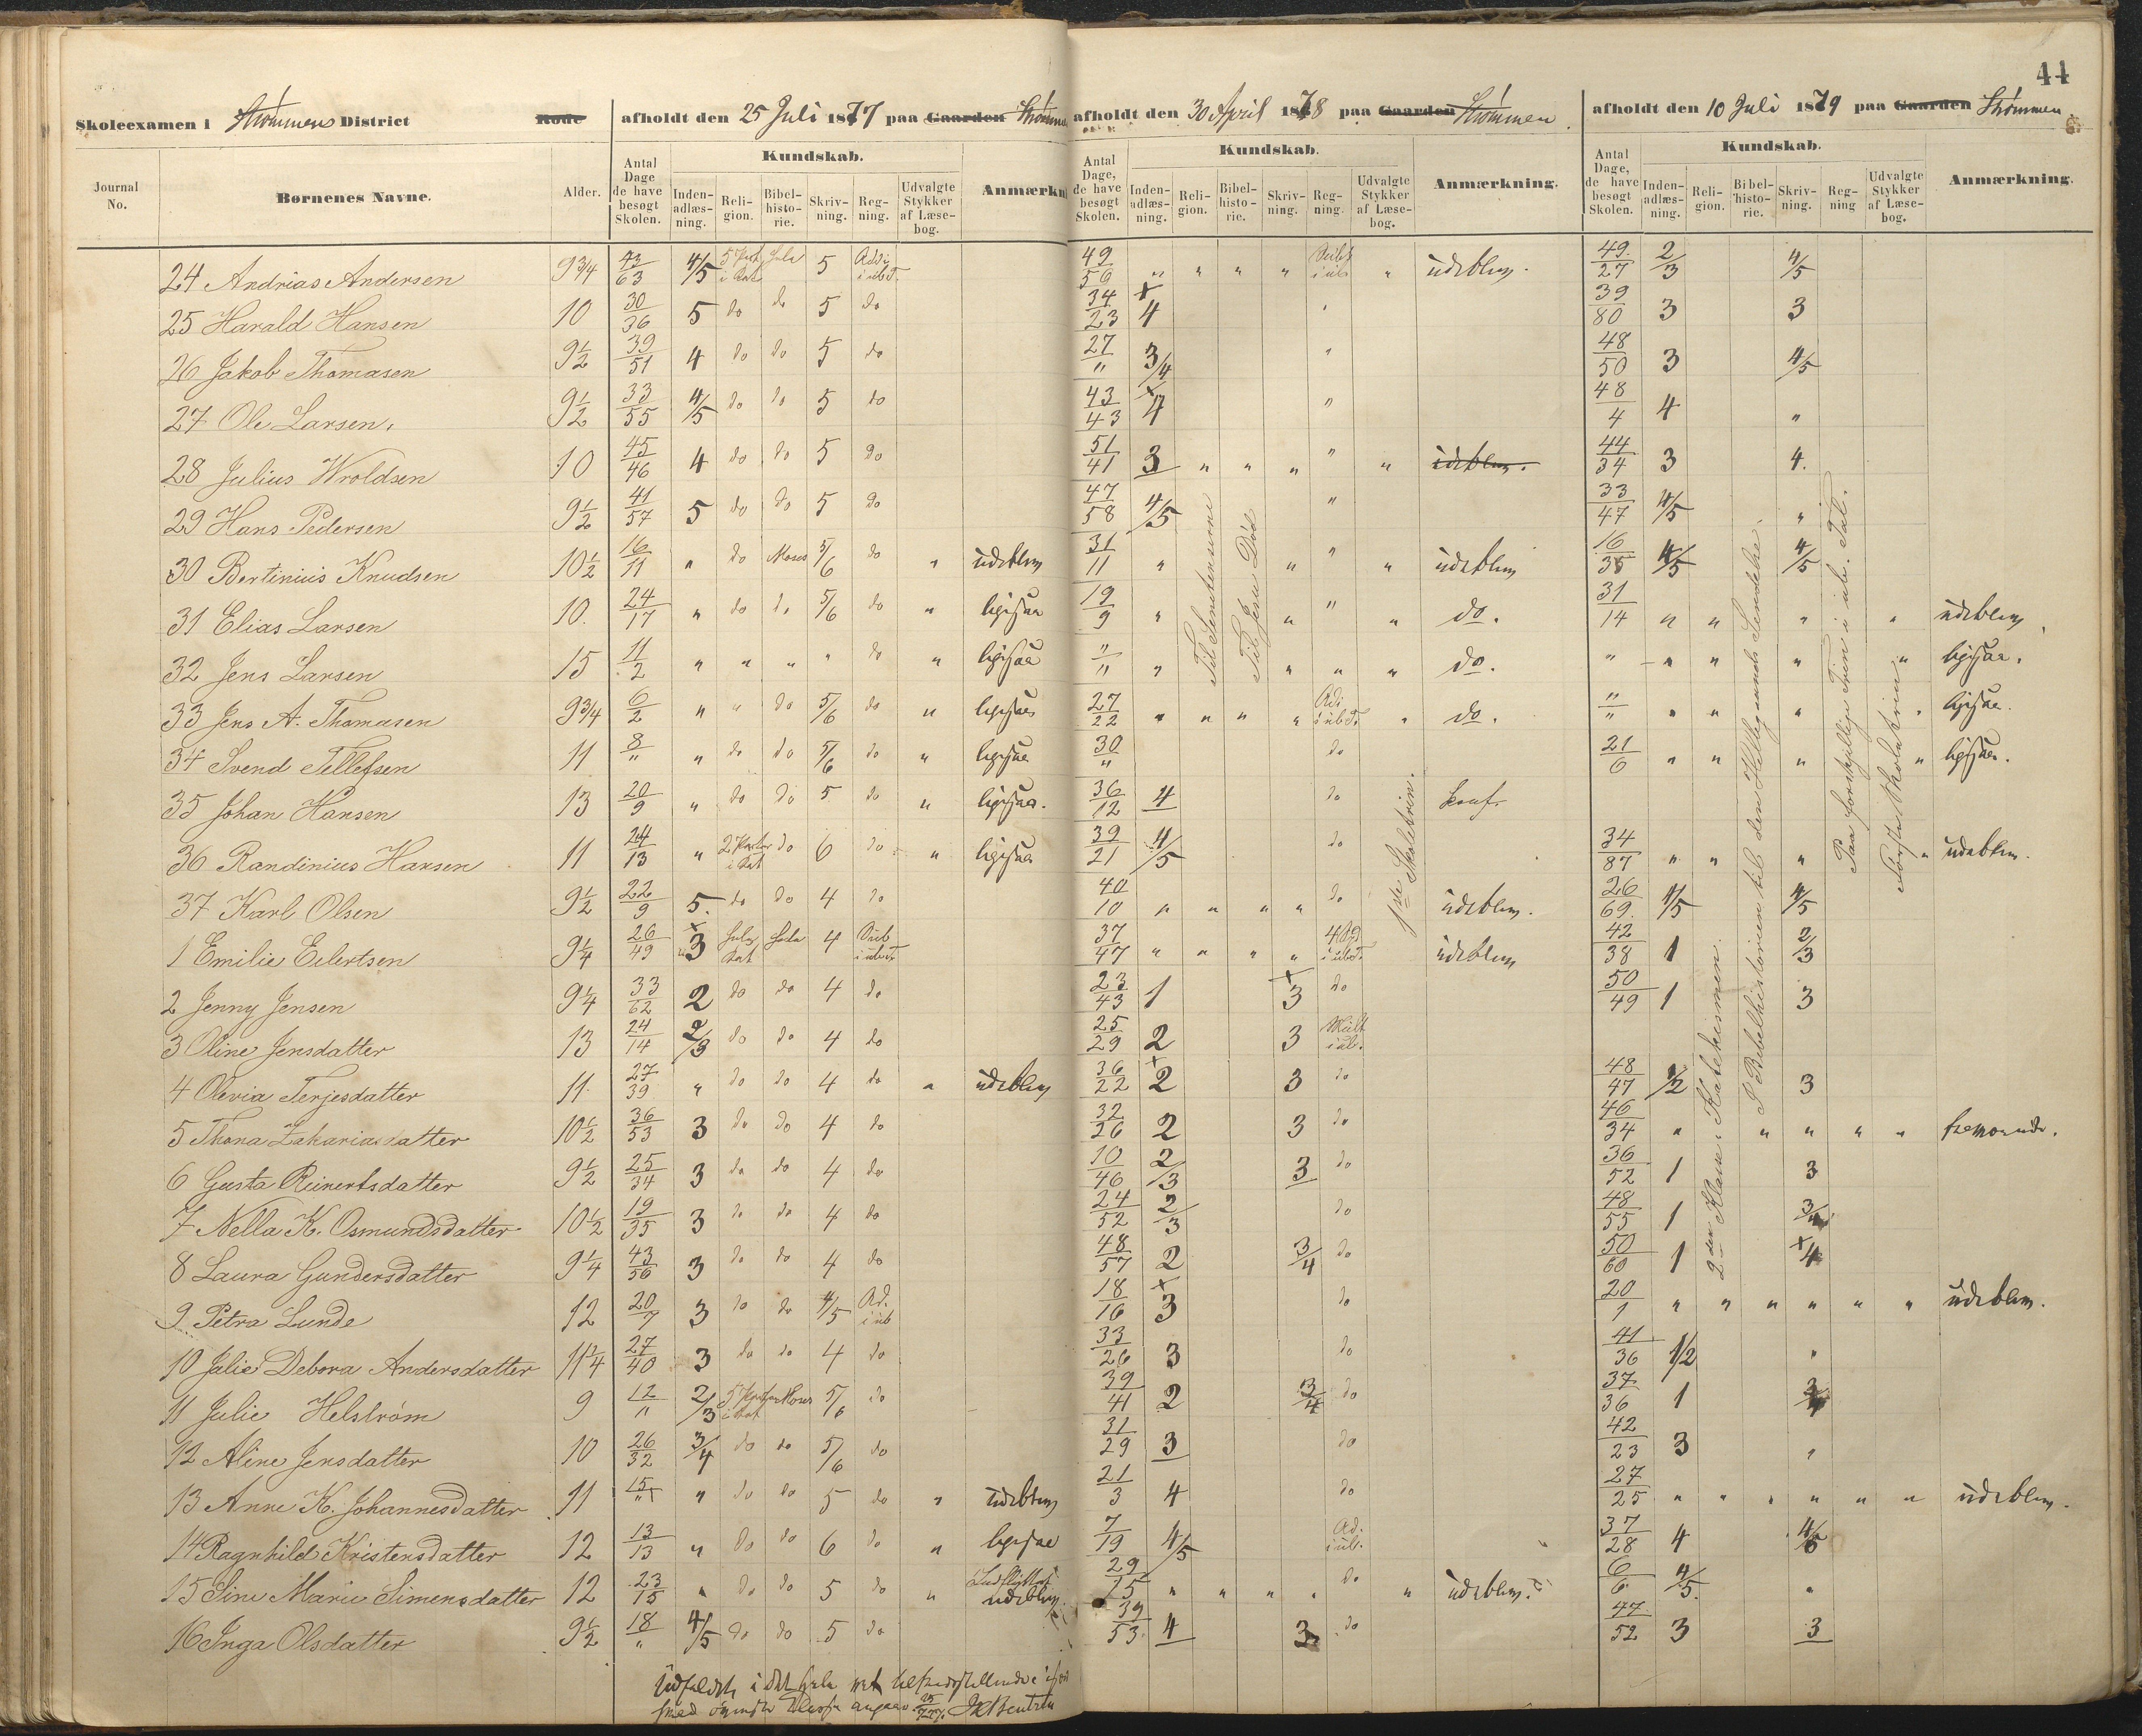 44
Skoleexamen i Strømmens District Rode afholdt den 25 Juli 1877 paa Gaarden Strømmen afholdt den 30 April 1878 paa Gaarden Strømmen. afholdt den 10 Juli 1879 paa Gaarden Strømmen
Journal No. Børnenes Navne. Alder. Antal Dage de have besøgt Skolen. Kundskab. Inden-adlæs-ning. Reli-gion. Bibel-histo-rie. Skriv-ning. Reg-ning. Udvalgte Stykker af Læse-bog.
Antal Dage, de have besøgt Skolen. Kundskab. Inden-adlæs-ning. Reli-gion. Bibel-histo-rie. Skriv-ning. Reg-ning. Udvalgte Stykker af Læse-bog. Anmærkning.
Antal Dage, de have besøgt Skolen. Kundskab. Inden-adlæs-ning. Reli-gion. Bibel-histo-rie. Skriv-ning. Reg-ning Udvalgte Stykker af Læse-bog. Anmærkning.
24 Andrias Andersen 9 3/4 43/63 4/5 5 49/56 " " " " " udeblev. 49/27 2/3 4/5
25 Harald Hansen 10 30/36 5 do do 5 do 34/23 4 39/80 3 3
26 Jakob Thomasen 9 1/2 39/51 4 do do 5 do 27/" 3/4 " 48/50 3 4/5
27 Ole Larsen. 9 1/2 33/55 4/5 do do 5 do 43/43 4 " 48/4 4 "
28 Julius Wroldsen 10 45/46 4 do do 5 do 51/41 3 " " " " " udeblev. 44/34 3 4.
29 Hans Pedersen 9 1/2 41/57 5 do do 5 do 47/58 4/5 " 33/47 4/5 "
30 Bertinius Knudsen 10 1/2 16/11 " do Moses 5/6 do " udeblev 31/11 " " " " udeblev 16/35 4/5 4/5
31 Elias Larsen 10. 24/17 " do do 5/6 do " ligesaa 19/9 " " " " do. 31/14 " " " " udeblev
32 Jens Larsen 15 11/2 " " " " do " ligesaa "/" " " " " do. " " " " " ligesaa.
33 Jens A. Thomasen 9 3/4 6/2 " " do 5/6 do " ligesaa 27/22 " " " " Adi i ub T. " do. "/" " " " " ligesaa.
34 Svend Tellefsen 11 8/" " do do 5/6 do " ligesaa 30/" do 21/6 " " " " ligesaa.
35 Johan Hansen 13 20/9 " do do 5 do " ligesaa. 36/12 4 do konf.
36 Randinius Hansen 11 24/13 " 2 Parter i Kat do 6 do " ligesaa 39/21 4/5 do 34/87 " " " " udeblev.
37 Karl Olsen 9 1/2 22/9 5. do do 4 do 40/10 " " " " do udeblev. 26/69. 4/5 4/5
1 Emilie Eilertsen 9 1/4 26/49 3 4 37/47 " " " " udeblev 42/38 1 2/3
2 Jenny Jensen 9 1/4 33/62 2 do do 4 do 23/43 1 3 do 50/49 1 3
3 Oline Jensdatter 13 24/14 2/3 do do 4 do 25/29 2 3 Mult i ub.
4 Olevia Terjesdatter 11. 27/39 " do do 4 do " udeblev 36/22 2 3 do 48/47 1/2 3
5 Thona Zakariasdatter 10 1/2 36/53 3 do do 4 do 32/26 2 3 do 46/34 " " " " "
6 Gusta Reinertsdatter 9 1/2 25/34 3 do do 4 do 10/46 2/3 3 do 36/52 1 3
7 Nella K. Osmundsdatter 10 1/2 19/35 3 do do 4 do 24/52 2/3 do 48/55 1
8 Laura Gundersdatter 9 1/4 43/56 3 do do 4 do 48/57 2 3/4 do 50/60 1 4
9 Petra Lunde 12 20/7 3 do do 4/5 Ad. i ub 18/16 3 do 20/1 " " " " " " udeblev.
10 Jalie Debora Andersdatter 11 1/4 27/40 3 do do 4 do 33/26 3 do 41/36 1/2 "
11 Julie Helstrøm 9 12/" 2/3 5/6 do 39/41 2 3/4 do 37/36 1
12 Aline Jensdatter 10 26/32 3/4 do do 5/6 do 31/29 3 do 42/23 3 "
13 Anne K. Johannesdatter 11 15/" " do do 5 do " udeblev 21/3 4 do 27/25 " " " " " " udeblev.
14 Ragnhild Kristensdatter 12 13/13 " do do 6 do " ligesaa 7/19 4/5 Ad. i ub. 37/28 4
15 Sine Marie Simensdatter 12 23/15 " do do 5 do " udeblev. 29/15 " " " " do " udeblev. 6/6 4/5. "
16 Inga Olsdatter 9 1/2 18/" 4/5 do do 5 do 39/53. 4 3 do 47/52 3 3
Til Jesu Død
1ste Skoletrin.
2den Klasse: Katekismen.
I Bibelhistorien til den Helligaands Sendelse.
Paa forskjellige Trin i ub. Tal.
Første Skoletrin
Udfaldet i det hele